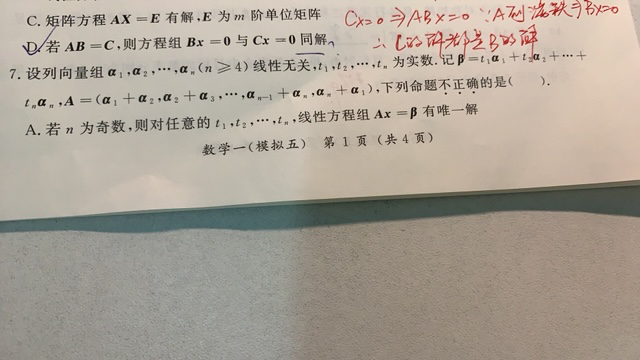 C. 矩阵方程 AX=E 有解,E 为 m 阶单位矩阵
D. 若 AB=C,则方程组 Bx=0 与 Cx=0 同解
Cx=0 ⇒ ABx=0 ∵A列满秩⇒Bx=0
∴ C的解都是B的解
7. 设列向量组 α₁,α₂,⋯,αₙ(n≥4)线性无关,t₁,t₂,⋯,tₙ 为实数.记 β=t₁α₁+t₂α₂+⋯+
tₙαₙ,A=(α₁+α₂,α₂+α₃,⋯,αₙ₋₁+αₙ,αₙ+α₁),下列命题不正确的是( ).
A. 若 n 为奇数,则对任意的 t₁,t₂,⋯,tₙ,线性方程组 Ax=β 有唯一解
数学一(模拟五) 第 1 页(共 4 页)